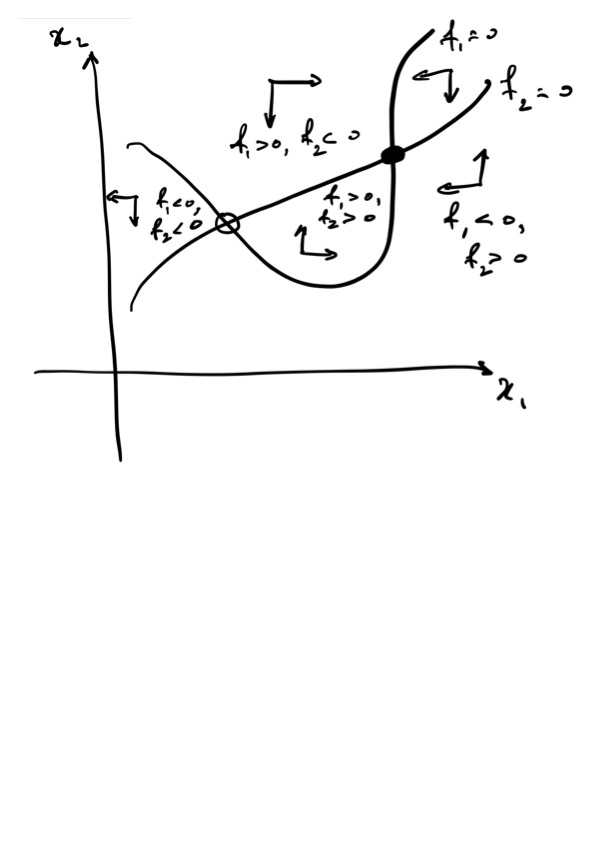 x₂
f₁ = 0
f₂ = 0
f₁ > 0, f₂ < 0
f₁ < 0,
f₂ < 0
f₁ > 0,
f₂ > 0
f₁ < 0,
f₂ > 0
x₁